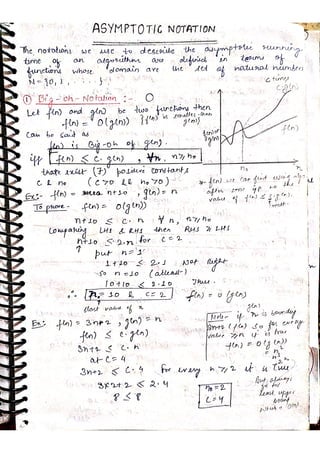 ASYMPTOTIC NOTATION
The notations we use to describe the asymptotic running
time of an algorithm are defined in terms of
functions whose domain are the set of natural number
N = {0, 1,
① Big-oh-Notation :- O
Let f(n) and g(n) be two functions then
f(n) = O(g(n)) } f(n) is smaller than g(n)
c times
c g(n)
f(n)
Can be said as
f(n) is Big-oh of g(n).
iff f(n) ≤ c. g(n) , ∀n, n ≥ n₀
that exist (∃) positive constants
c & n₀ (c > 0 & n₀ > 0)
Ex:- f(n) = n+10 , g(n) = n
To prove - f(n) = O(g(n))
n+10 ≤ c. n ∀ n, n ≥ n₀
Comparing LHS & RHS then RHS ≥ LHS
n+10 ≤ 2.n for c = 2
put n = 1
1+10 ≤ 2.1 Not Right
So n = 10 (atleast)
10+10 ≤ 2.10 True.
∴ n₀ = 10 & c = 2 f(n) = O(g(n))
start value of n
Ex:- f(n) = 3n+2 , g(n) = n
f(n) ≤ c. g(n)
3n+2 ≤ c. n
at c = 4
3n+2 ≤ c. 4 for every n ≥ 2 it is True
3×2+2 ≤ 2. 4
8 ≤ 8
n₀ = 2
c = 4
f(n) = O(g(n))
least upper
bound